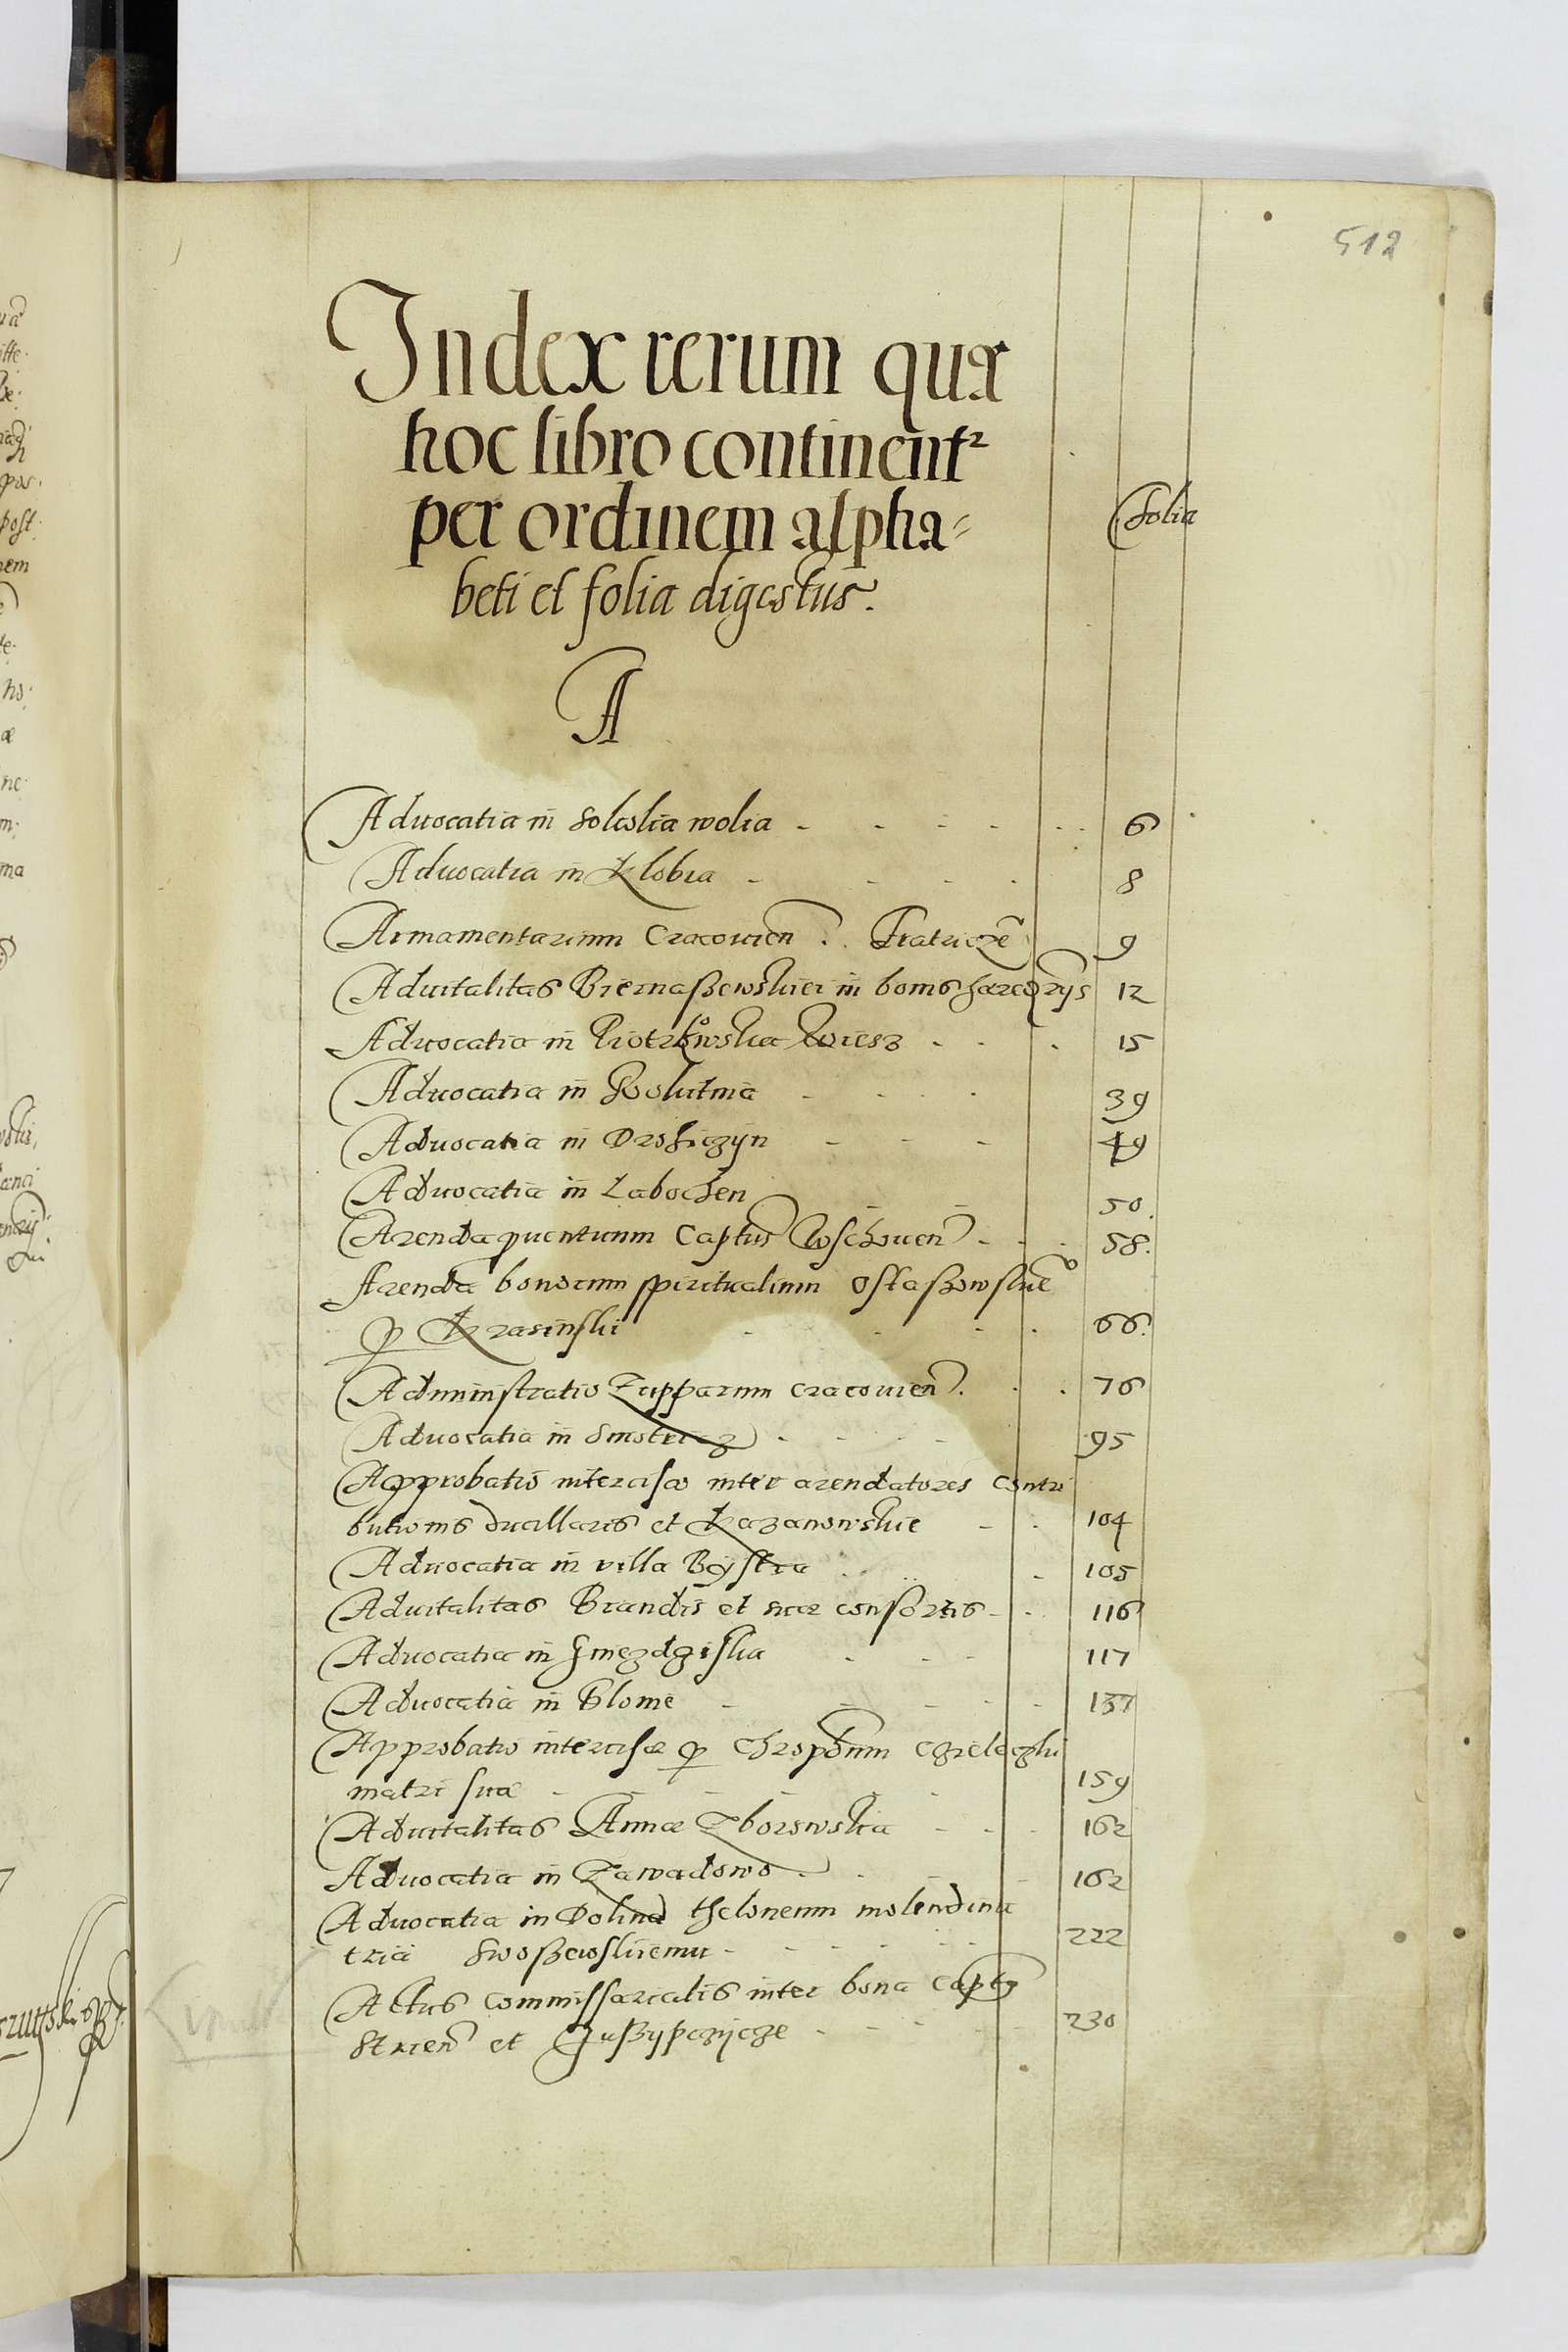 512
Index rerum quæ
hoc libro continent2
per ordinem alpha=
beti et folia digestus.
folia
A
Aduocatia in solıslıa wolia 6
Aduocatia in Klobia 8
Armamentarium Cracouien. 9
Aduitalitas Biernaßewskiei in bonis 12
Aduocatia in Piotrkowska Wiesz 15
Aduocatia in 39
Aduocatia in Drohiczyn 49
Aduocatia in Labochen 50.
Arenda puentuum Captus Wschouen 58.
Arenda bonorum spiritualium Ostaßowskie
Krasinski 66.
Administratio Zupparum cracouien. 76
Aduocatia in 95
Approbatio intercisæ inter arendatores contri
butionis ducillaris et Kazanowskie 104
Aduocatia in villa Bystra 105
Aduitalitas Brandis et suæ consortis 116
Aduocatia in 117
Aduocatia in Blome 137
Approbatio intercisæ p
matri suæ 159
Aduitalitas Annæ Zborowska 162
Aduocatia in Zawadowo 162
Aduocatia in Dolina theloneum molendina
tria Swoßowskiemu 222
Actus commissarialis inter bona Capts
Strien et 230